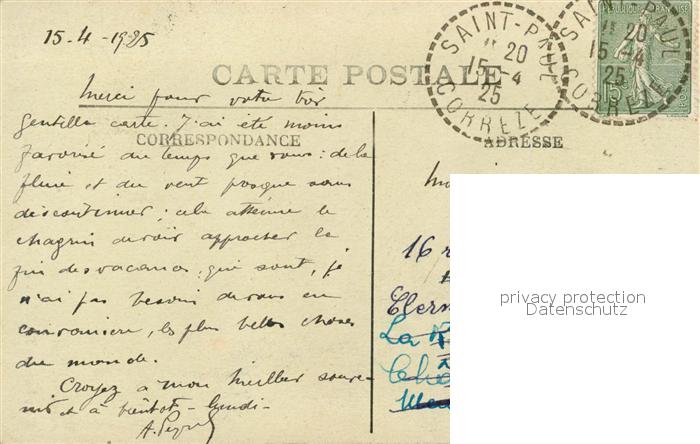 15-4-1925
CARTE POSTALE
SAINT-PAUL
20
15-4
25
CORREZE
SAINT-PAUL
20
15-4
25
CORREZE
15c
CORRESPONDANCE
ADRESSE
Merci pour votre très
gentille carte. J'ai été moins
favorisé du temps que vous : de la
pluie et du vent presque sans
discontinuer ; cela atténue le
chagrin de voir approcher la
fin des vacances, qui sont, je
n'ai pas besoin de vous en
convaincre, les plus belles choses
du monde.
Croyez à mon meilleur souve-
nir et à bientôt - lundi -
16
Clerm
La
privacy protection
Datenschutz